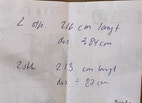 2 stk 216 cm langt
dvs = 84 cm
2 stk 213 cm langt
dvs = 87 cm